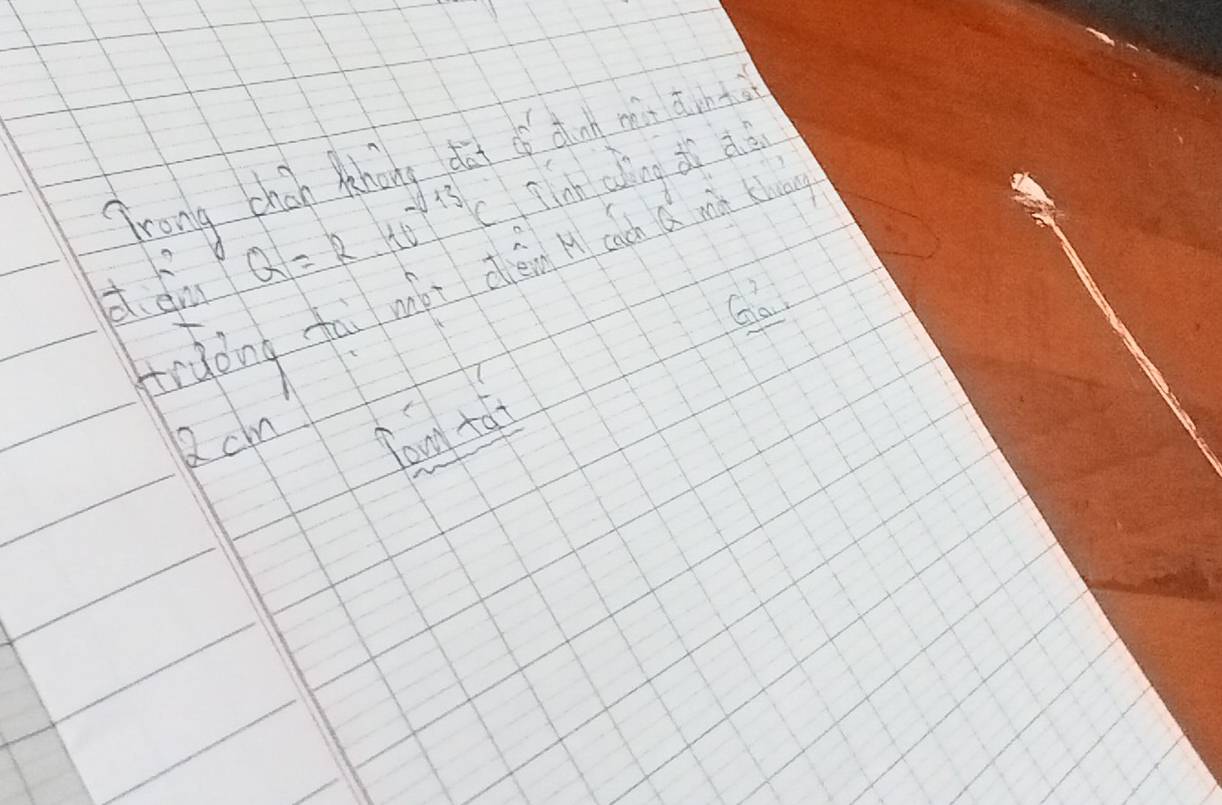 Trong chân không đặt cố định một điện tích
điểm Q = 2.10⁻¹³ C Tính cường độ điện
trường tại một điểm M cách Q một khoảng
2 cm
Giải
Tóm tắt